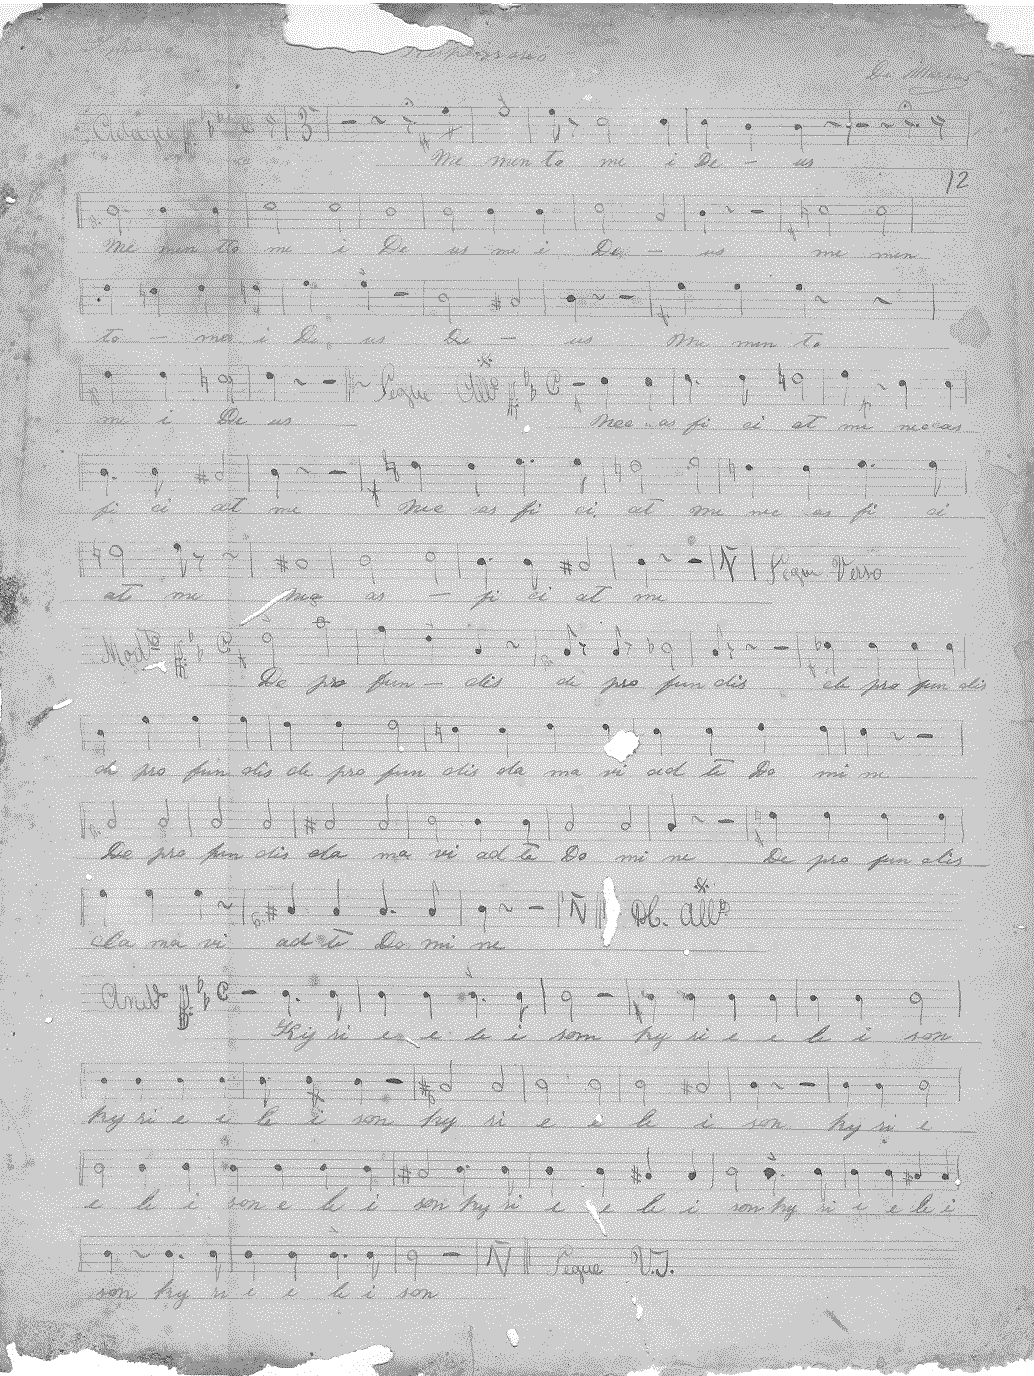 Responsorio
De Mareus
Adagio 3
Me men to me i De - us
12
Me men to me i De us me i De - us me men
to - mei i De us De - us Me men to
Segue All.º
me i De us Nec as pi ci at me nec as
pi ci at me Nec as pi ci at me nec as pi ci
Segue Verso
at me Nec as - pi ci at me
Mod.to
De pro fun - dis de pro fun dis de pro fun dis
de pro fun dis de pro fun dis cla ma vi ad te Do mi ne
De pro fun dis cla ma vi ad te Do mi ne De pro fun dis
DC. All.º
cla ma vi ad te Do mi ne
And.te
Ky ri e e le i som ky ri e e le i son
ky ri e e le i son ky ri e e le i son ky ri e
e le i son e le i son ky ri e e le i son ky ri e e le i
Segue V.J.
son ky ri e e le i son